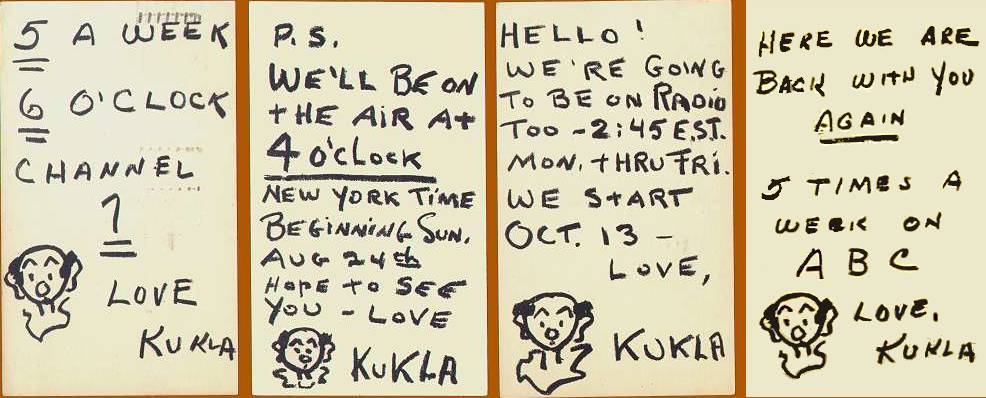 5 A WEEK
6 O'CLOCK
CHANNEL
7
LOVE
KUKLA
P.S.
WE'LL BE ON
THE AIR AT
4 O'CLOCK
NEW YORK TIME
BEGINNING SUN.
AUG 24th
HOPE TO SEE
YOU - LOVE
KUKLA
HELLO!
WE'RE GOING
TO BE ON RADIO
TOO - 2:45 E.S.T.
MON. THRU FRI.
WE START
OCT. 13 -
LOVE,
KUKLA
HERE WE ARE
BACK WITH YOU
AGAIN
5 TIMES A
WEEK ON
ABC
LOVE,
KUKLA